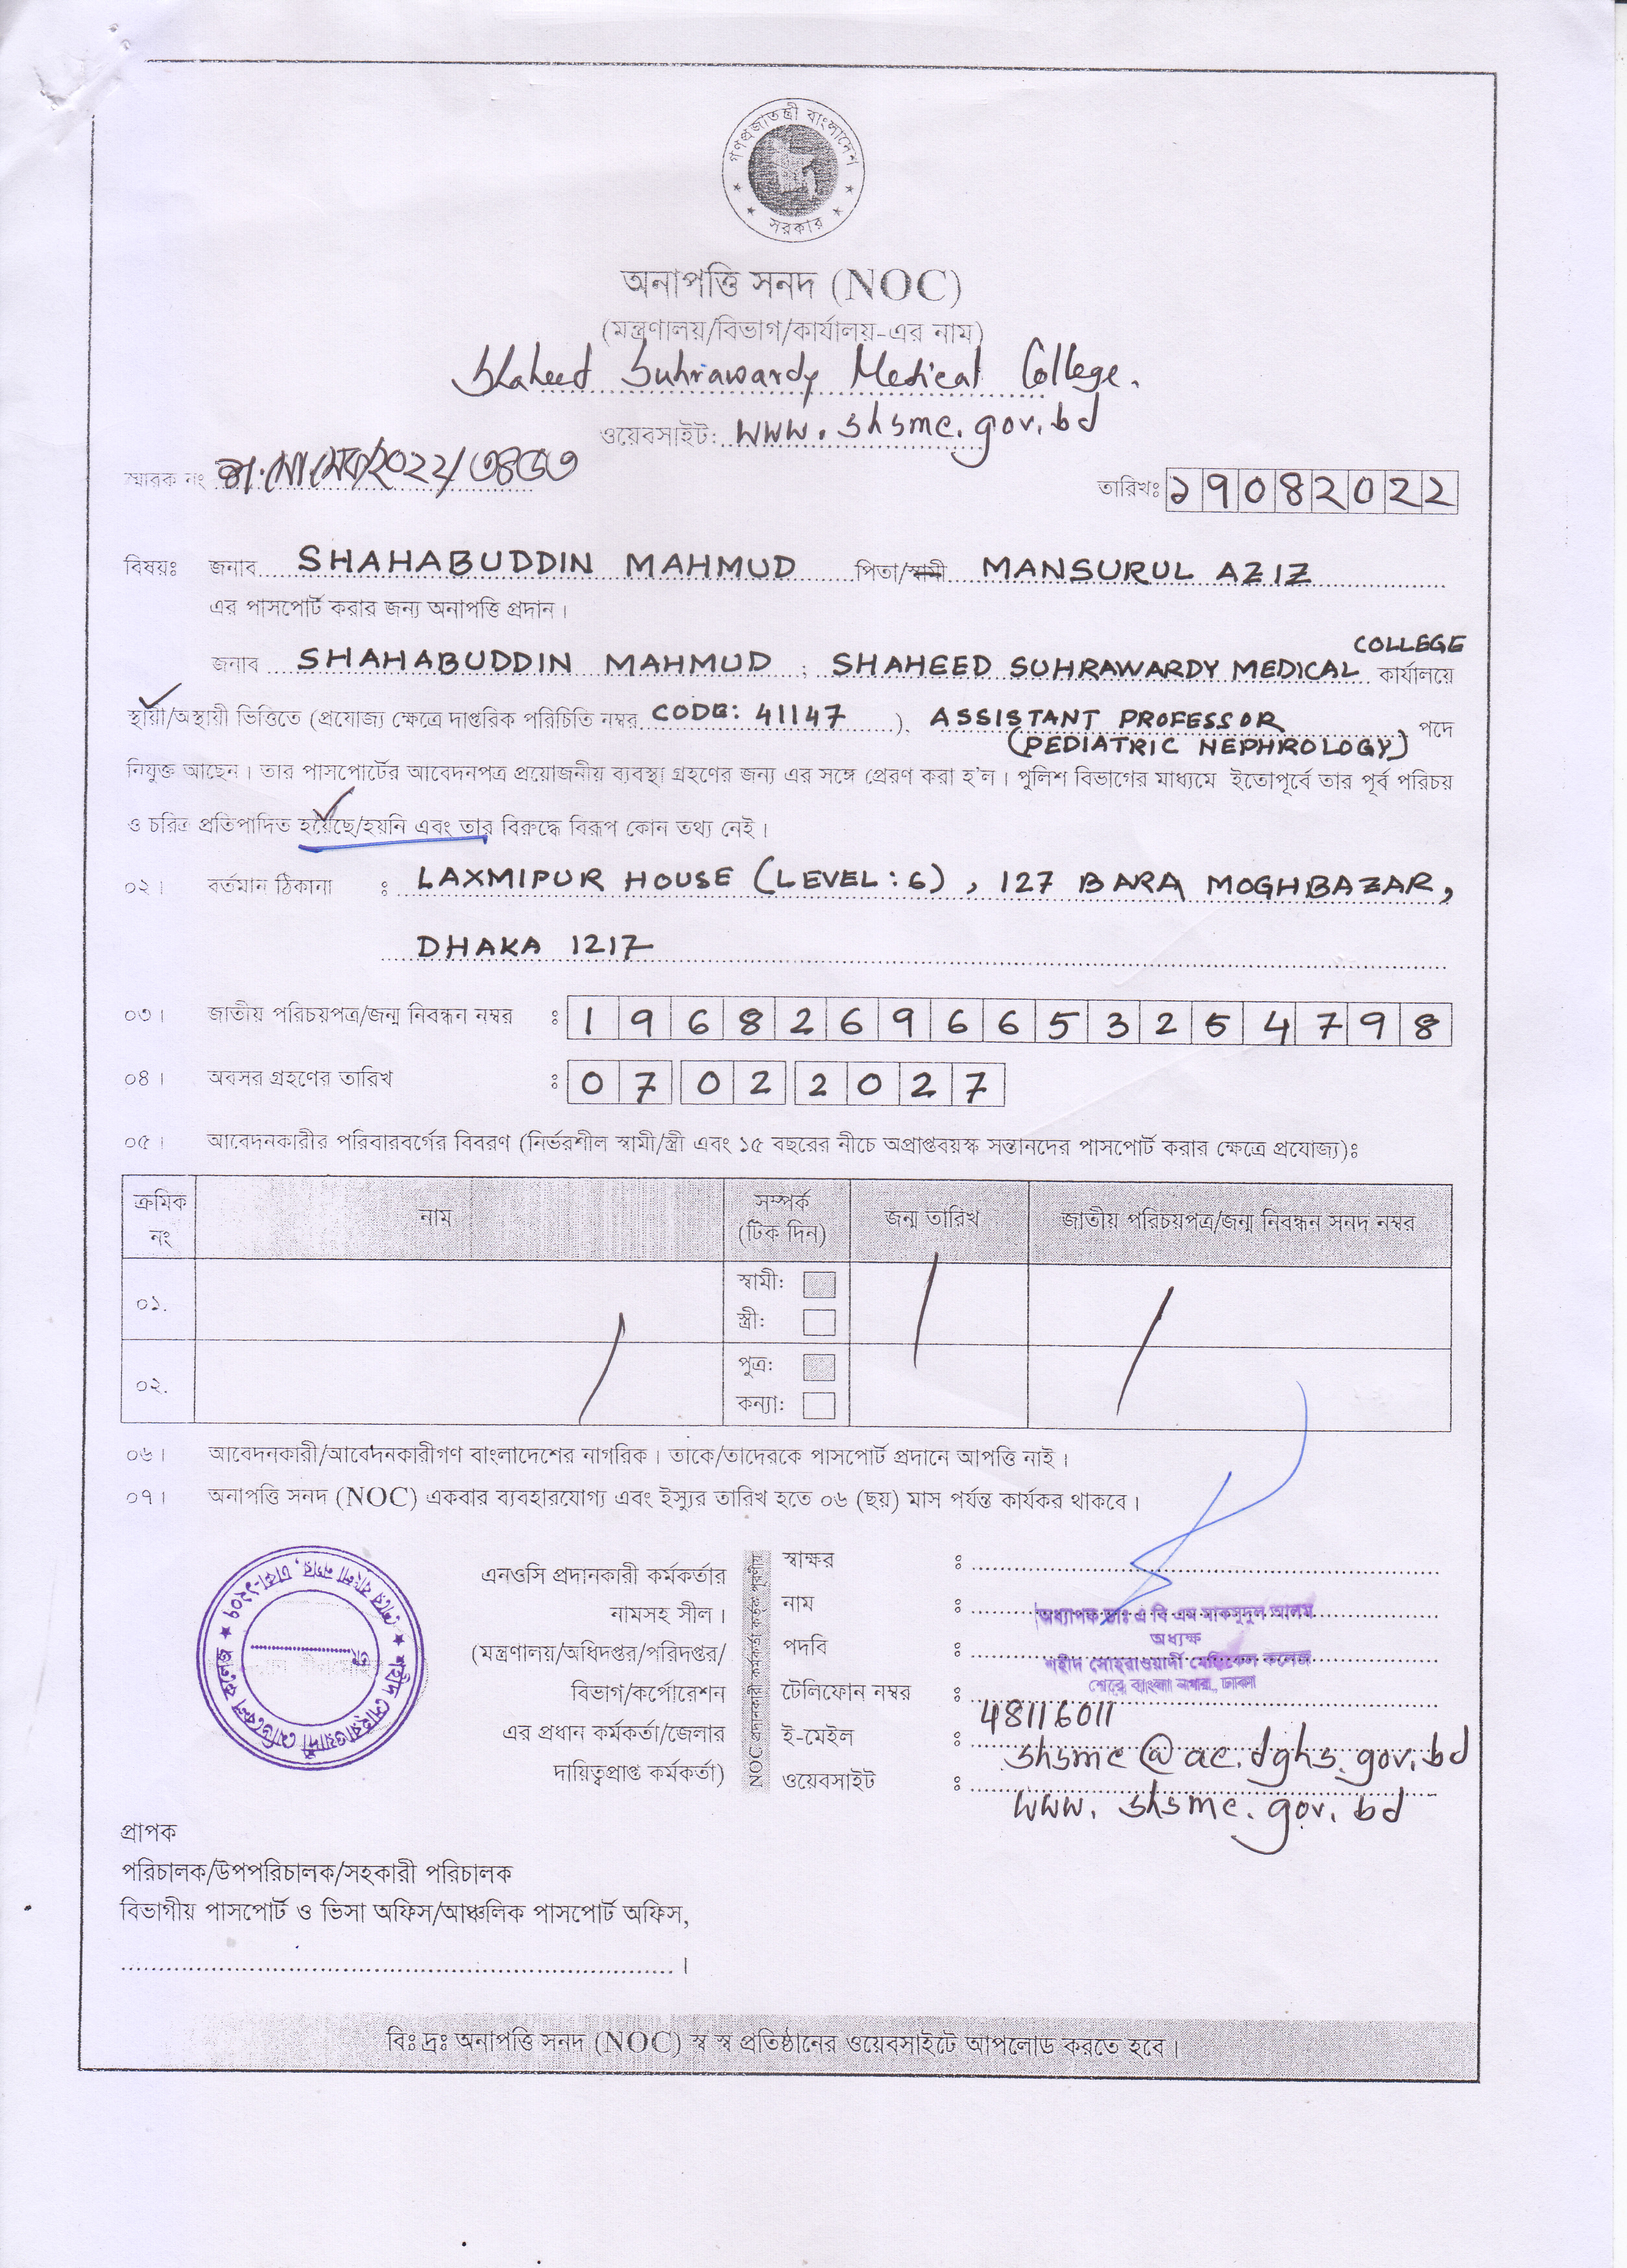 গণপ্রজাতন্ত্রী বাংলাদেশ
সরকার
অনাপত্তি সনদ (NOC)
(মন্ত্রণালয়/বিভাগ/কার্যালয়-এর নাম)
Shaheed Suhrawardy Medical College.
ওয়েবসাইট: www.shsmc.gov.bd
স্মারক নং
তারিখঃ ১9082022
বিষয়ঃ জনাব SHAHABUDDIN MAHMUD পিতা/স্বামী MANSURUL AZIZ
এর পাসপোর্ট করার জন্য অনাপত্তি প্রদান।
জনাব SHAHABUDDIN MAHMUD ; SHAHEED SUHRAWARDY MEDICAL COLLEGE কার্যালয়ে
স্থায়ী/অস্থায়ী ভিত্তিতে (প্রযোজ্য ক্ষেত্রে দাপ্তরিক পরিচিতি নম্বর CODE: 41147 ), ASSISTANT PROFESSOR পদে
(PEDIATRIC NEPHROLOGY)
নিযুক্ত আছেন। তার পাসপোর্টের আবেদনপত্র প্রয়োজনীয় ব্যবস্থা গ্রহণের জন্য এর সঙ্গে প্রেরণ করা হ'ল। পুলিশ বিভাগের মাধ্যমে ইতোপূর্বে তার পূর্ব পরিচয়
ও চরিত্র প্রতিপাদিত হয়েছে/হয়নি এবং তার বিরুদ্ধে বিরূপ কোন তথ্য নেই।
০২। বর্তমান ঠিকানা : LAXMIPUR HOUSE (LEVEL:6), 127 BARA MOGHBAZAR,
DHAKA 1217
০৩। জাতীয় পরিচয়পত্র/জন্ম নিবন্ধন নম্বর : 19682696653254798
০৪। অবসর গ্রহণের তারিখ : 07 02 2027
০৫। আবেদনকারীর পরিবারবর্গের বিবরণ (নির্ভরশীল স্বামী/স্ত্রী এবং ১৫ বছরের নীচে অপ্রাপ্তবয়স্ক সন্তানদের পাসপোর্ট করার ক্ষেত্রে প্রযোজ্য)ঃ
ক্রমিক নং নাম সম্পর্ক (টিক দিন) জন্ম তারিখ জাতীয় পরিচয়পত্র/জন্ম নিবন্ধন সনদ নম্বর
০১. স্বামী:
স্ত্রী:
০২. পুত্র:
কন্যা:
০৬। আবেদনকারী/আবেদনকারীগণ বাংলাদেশের নাগরিক। তাকে/তাদেরকে পাসপোর্ট প্রদানে আপত্তি নাই।
০৭। অনাপত্তি সনদ (NOC) একবার ব্যবহারযোগ্য এবং ইস্যুর তারিখ হতে ০৬ (ছয়) মাস পর্যন্ত কার্যকর থাকবে।
শহীদ সোহরাওয়ার্দী মেডিকেল কলেজ
শেরে বাংলা নগর, ঢাকা-১২০৭
এনওসি প্রদানকারী কর্মকর্তার
নামসহ সীল।
(মন্ত্রণালয়/অধিদপ্তর/পরিদপ্তর/
বিভাগ/কর্পোরেশন
এর প্রধান কর্মকর্তা/জেলার
দায়িত্বপ্রাপ্ত কর্মকর্তা)
NOC প্রদানকারী কর্মকর্তা কর্তৃক পূরণীয়
স্বাক্ষর :
নাম : অধ্যাপক ডাঃ এ বি এম মাকসুদুল আলম
অধ্যক্ষ
পদবি : শহীদ সোহরাওয়ার্দী মেডিকেল কলেজ
শেরে বাংলা নগর, ঢাকা
টেলিফোন নম্বর : 48116011
ই-মেইল : shsmc@ac.dghs.gov.bd
ওয়েবসাইট : www.shsmc.gov.bd
প্রাপক
পরিচালক/উপপরিচালক/সহকারী পরিচালক
বিভাগীয় পাসপোর্ট ও ভিসা অফিস/আঞ্চলিক পাসপোর্ট অফিস,
বিঃ দ্রঃ অনাপত্তি সনদ (NOC) স্ব স্ব প্রতিষ্ঠানের ওয়েবসাইটে আপলোড করতে হবে।